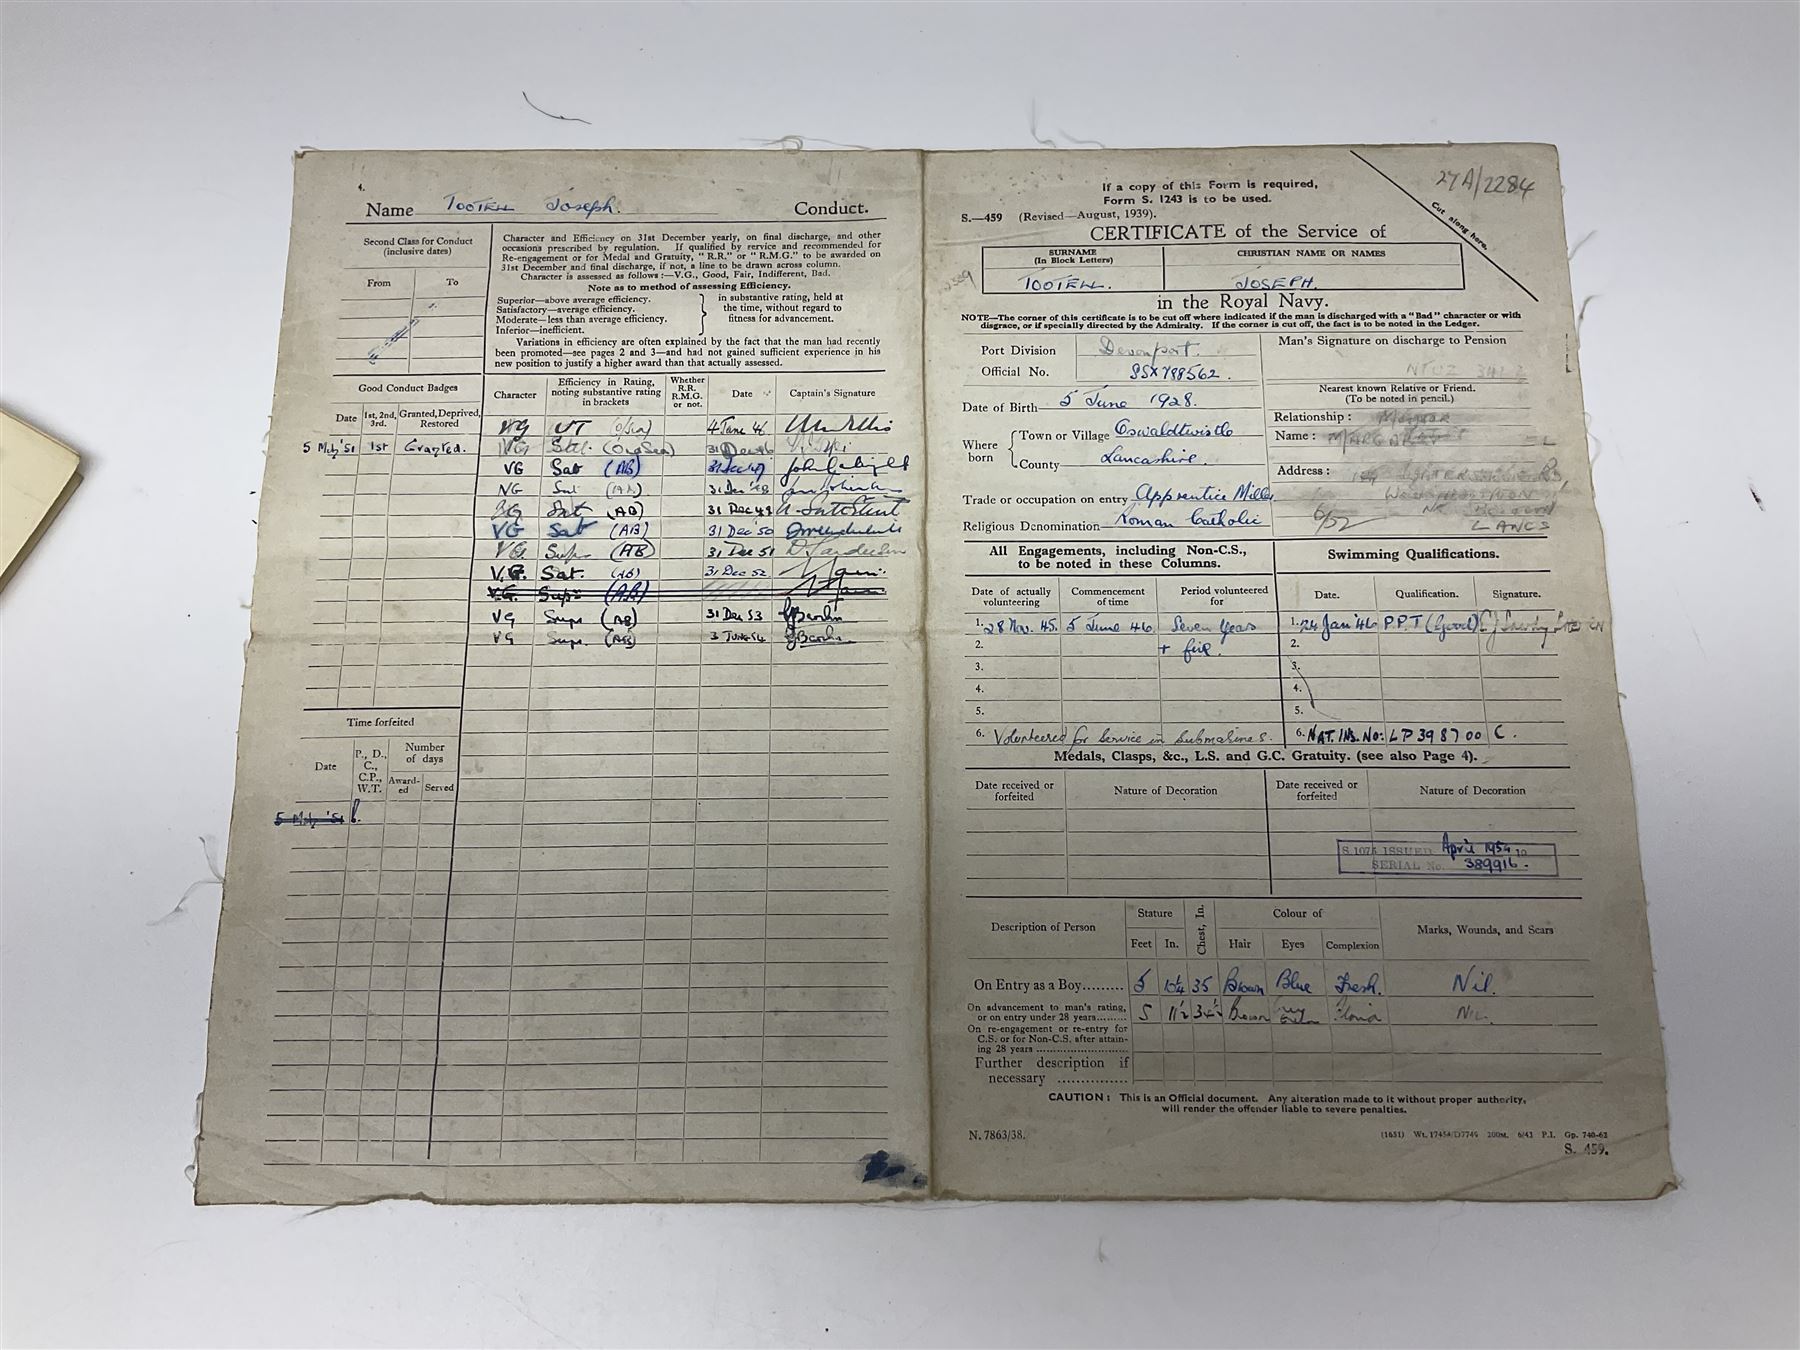 4.
Name TOOTELL JOSEPH. Conduct.
Second Class for Conduct
(inclusive dates)
From To
Character and Efficiency on 31st December yearly, on final discharge, and other
occasions prescribed by regulation. If qualified by service and recommended for
Re-engagement or for Medal and Gratuity, "R.R." or "R.M.G." to be awarded on
31st December and final discharge, if not, a line to be drawn across column.
Character is assessed as follows:—V.G., Good, Fair, Indifferent, Bad.
Note as to method of assessing Efficiency.
Superior—above average efficiency.
Satisfactory—average efficiency.
Moderate—less than average efficiency.
Inferior—inefficient.
in substantive rating, held at
the time, without regard to
fitness for advancement.
Variations in efficiency are often explained by the fact that the man had recently
been promoted—see pages 2 and 3—and had not gained sufficient experience in his
new position to justify a higher award than that actually assessed.
Good Conduct Badges
Date 1st, 2nd, 3rd. Granted, Deprived, Restored
5 Mch '51 1st Granted.
Character Efficiency in Rating, noting substantive rating in brackets Whether R.R. R.M.G. or not. Date Captain's Signature
VG UT (O/Sea) 4 June 46
VG Sat. (Ord Sea) 31 Dec 46
VG Sat (AB) 31 Dec 47
VG Sat (AB) 31 Dec '48
VG Sat (AB) 31 Dec 49
VG Sat (AB) 31 Dec '50
VG. Sup. (AB) 31 Dec 51
V.G. Sat. (AB) 31 Dec 52
V.G. Supr (AB)
VG Supr (AB) 31 Dec 53
VG Supr. (AB) 3 June 54
Time forfeited
Date P., D., C., C.P., W.T. Number of days
Awarded Served
5 Mch '51
27A/2284
Cut along here.
If a copy of this Form is required,
Form S. 1243 is to be used.
S.—459 (Revised—August, 1939).
CERTIFICATE of the Service of
SURNAME
(In Block Letters)
CHRISTIAN NAME OR NAMES
TOOTELL. JOSEPH.
in the Royal Navy.
NOTE—The corner of this certificate is to be cut off where indicated if the man is discharged with a "Bad" character or with
disgrace, or if specially directed by the Admiralty. If the corner is cut off, the fact is to be noted in the Ledger.
Port Division Devonport.
Official No. PSX788562.
Man's Signature on discharge to Pension
Date of Birth 5 June 1928.
Nearest known Relative or Friend.
(To be noted in pencil.)
Where born Town or Village Oswaldtwistle
County Lancashire.
Relationship: Mother
Name: MARGARET
Address:
LANCS
6/52
Trade or occupation on entry Apprentice Miller
Religious Denomination Roman Catholic
All Engagements, including Non-C.S.,
to be noted in these Columns.
Swimming Qualifications.
Date of actually volunteering Commencement of time Period volunteered for
Date. Qualification. Signature.
1. 28 Nov. 45. 5 June 46 Seven Years
1. 24 Jan '46 P.P.T (Good)
2. + five.
2.
3.
3.
4.
4.
5.
5.
6. Volunteered for Service in Submarines.
6. NAT. INS. NO: LP 398700 C.
Medals, Clasps, &c., L.S. and G.C. Gratuity. (see also Page 4).
Date received or forfeited Nature of Decoration Date received or forfeited Nature of Decoration
S.1075 ISSUED April 1954
SERIAL No. 389916.
Description of Person Stature Chest, In. Colour of Marks, Wounds, and Scars
Feet In. Hair Eyes Complexion
On Entry as a Boy......... 5 10¼ 35 Brown Blue Fresh. Nil.
On advancement to man's rating,
or on entry under 28 years......... 5 11½ 34½ Brown Nil.
On re-engagement or re-entry for
C.S. or for Non-C.S. after attain-
ing 28 years .................................
Further description if
necessary ...............
CAUTION: This is an Official document. Any alteration made to it without proper authority,
will render the offender liable to severe penalties.
N. 7863/38.
(1651) Wt. 17454/D7749 200M. 6/41 P.I. Gp. 740-62
S. 459.